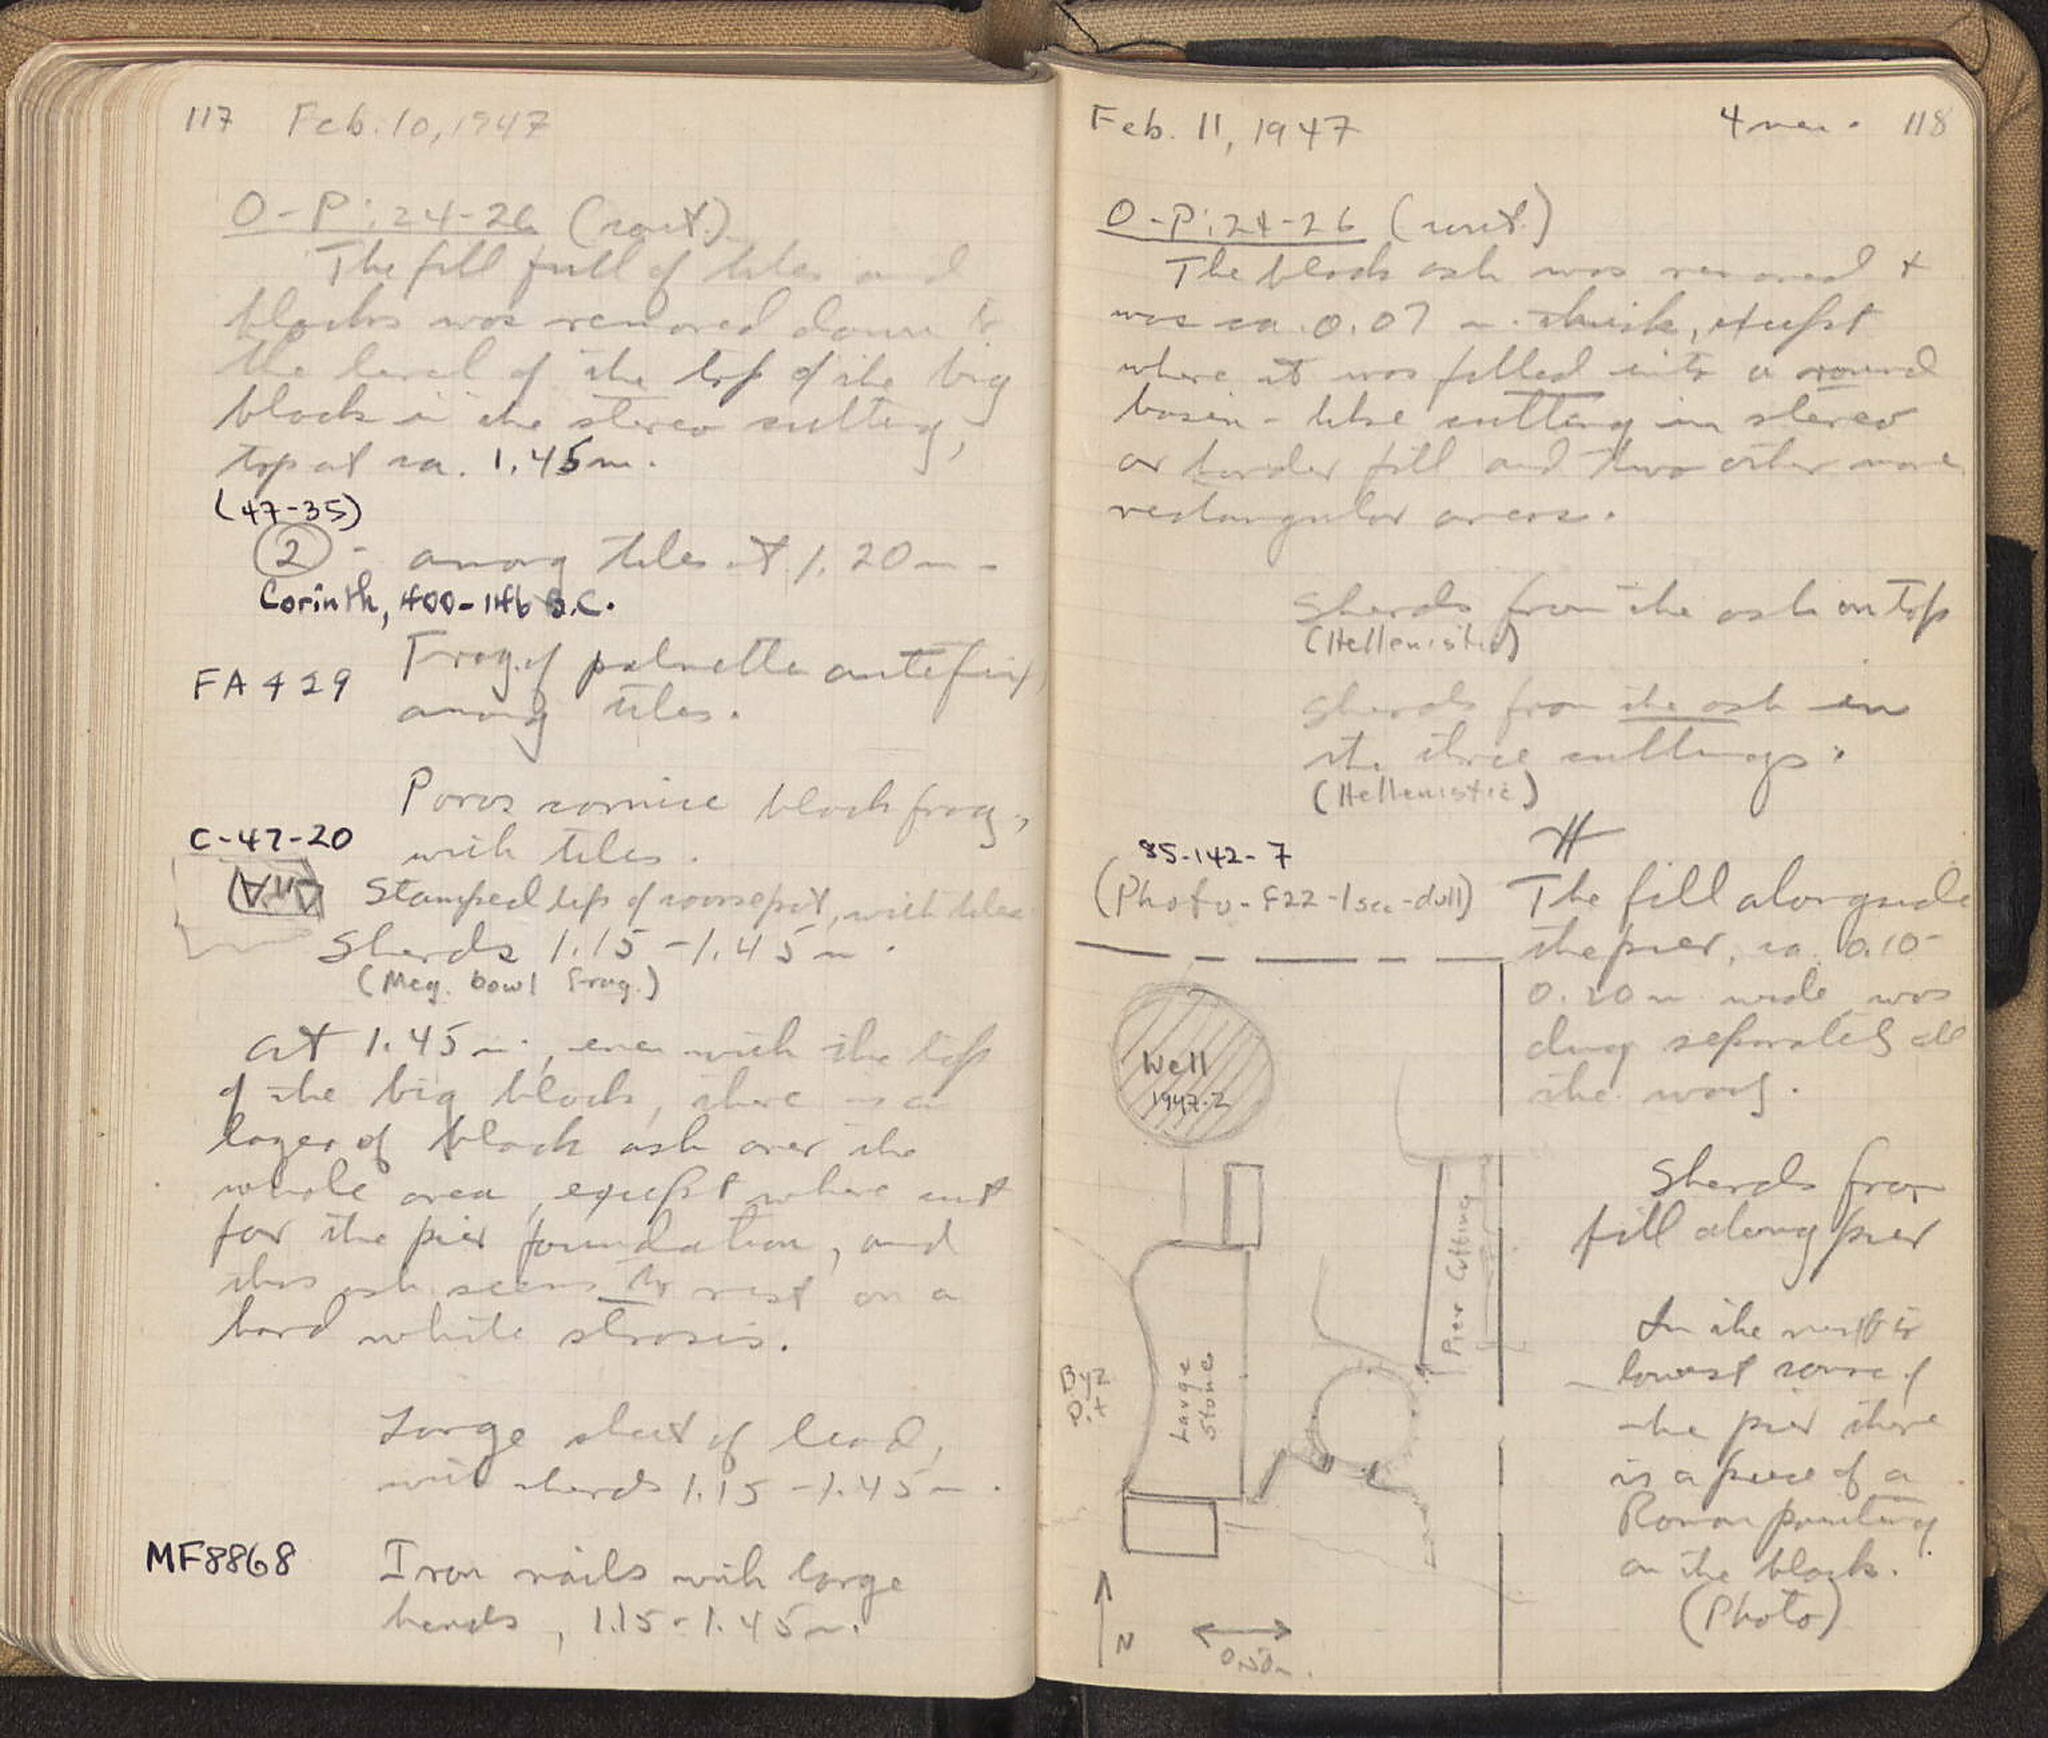 117 Feb. 10, 1947
O-P: 24-26 (cont.)
The fill full of tiles and
blocks was removed down to
the level of the top of the big
block in the stereo cutting,
top at ca. 1.45 m.
(47-35)
② - among tiles at 1.20 m -
Corinth, 400-146 B.C.
FA 429
Frag. of palmette antefix,
among tiles.
Poros cornice block frag.,
with tiles.
C-47-20
Stamped lip of coarse pot, with tiles
Sherds 1.15 - 1.45 m.
(Meg. bowl frag.)
At 1.45 m., even with the top
of the big block, there is a
layer of black ash over the
whole area, except where cut
for the pier foundation, and
this ash seems to rest on a
hard white strosis.
Large sheet of lead,
with sherds 1.15 - 1.45 m.
MF8868
Iron nails with large
heads, 1.15 - 1.45 m.
Feb. 11, 1947 4 men. 118
O-P: 24-26 (cont.)
The black ash was removed +
was ca. 0.07 m. thick, except
where it was filled into a round
basin-like cutting in stereo
or harder fill and two other more
rectangular areas.
Sherds from the ash on top
(Hellenistic)
Sherds from the ash in
the three cuttings.
(Hellenistic)
85-142-7
(Photo - F22-1 sec-dull)
The fill alongside
the pier, ca. 0.10-
0.20 m wide, was
dug separately all
the way.
Sherds from
fill along pier
In the next to
lowest course of
the pier there
is a piece of a
Roman painting
on the block.
(Photo)
Well
1947-2
Pier Cutting
Large
Stone
Byz
Pit
N
0.50 m.